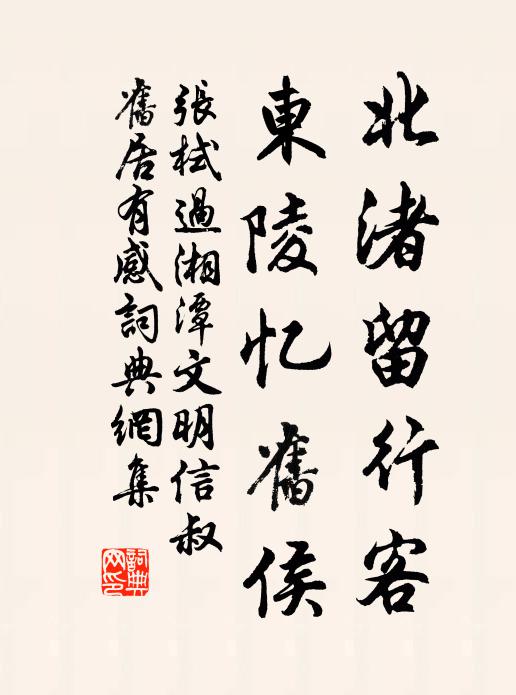 北渚留行客
東陵忆舊侯
張栻過湘潭文明信叔
舊居有感詞典網集
詞典
网印